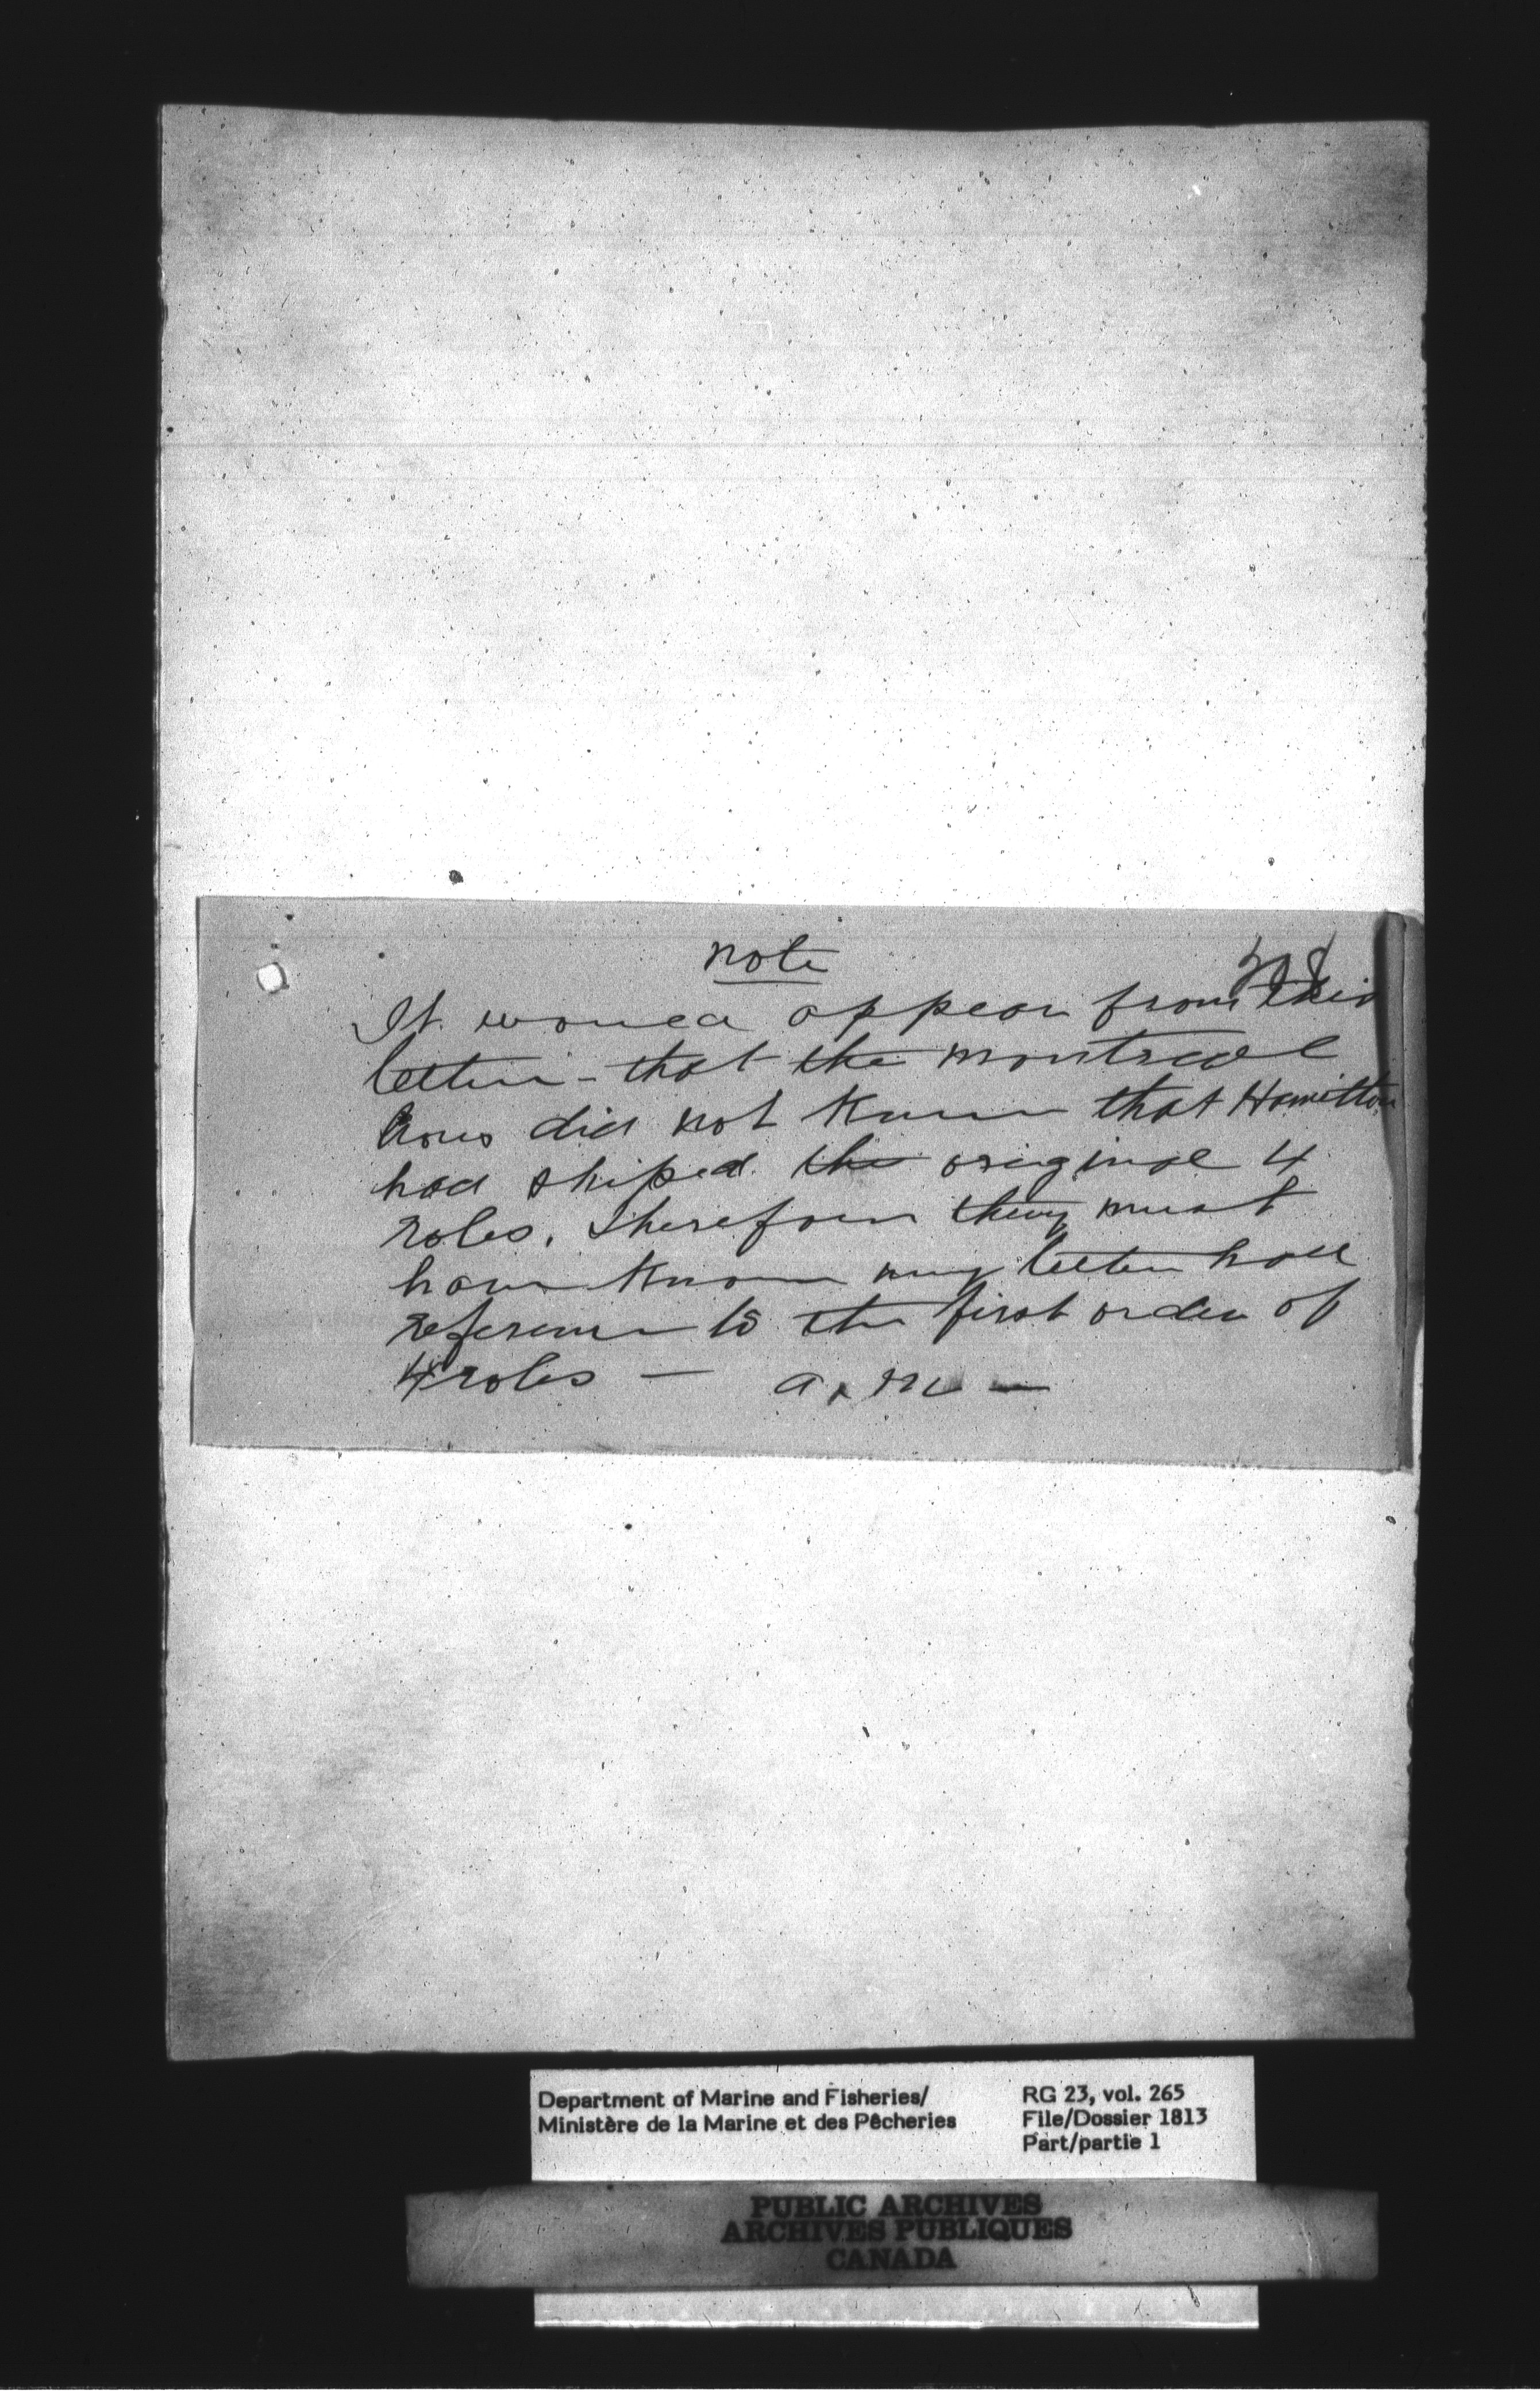 note
It would appear from this
letter - that the montreal
hous did not know that Hamilton
had shiped the original 4
roles. Therefore they must
have known my letter had
reference to the first order of
4 roles —  a. m —
Department of Marine and Fisheries/
Ministère de la Marine et des Pêcheries
RG 23, vol. 265
File/Dossier 1813
Part/partie 1
PUBLIC ARCHIVES
ARCHIVES PUBLIQUES
CANADA